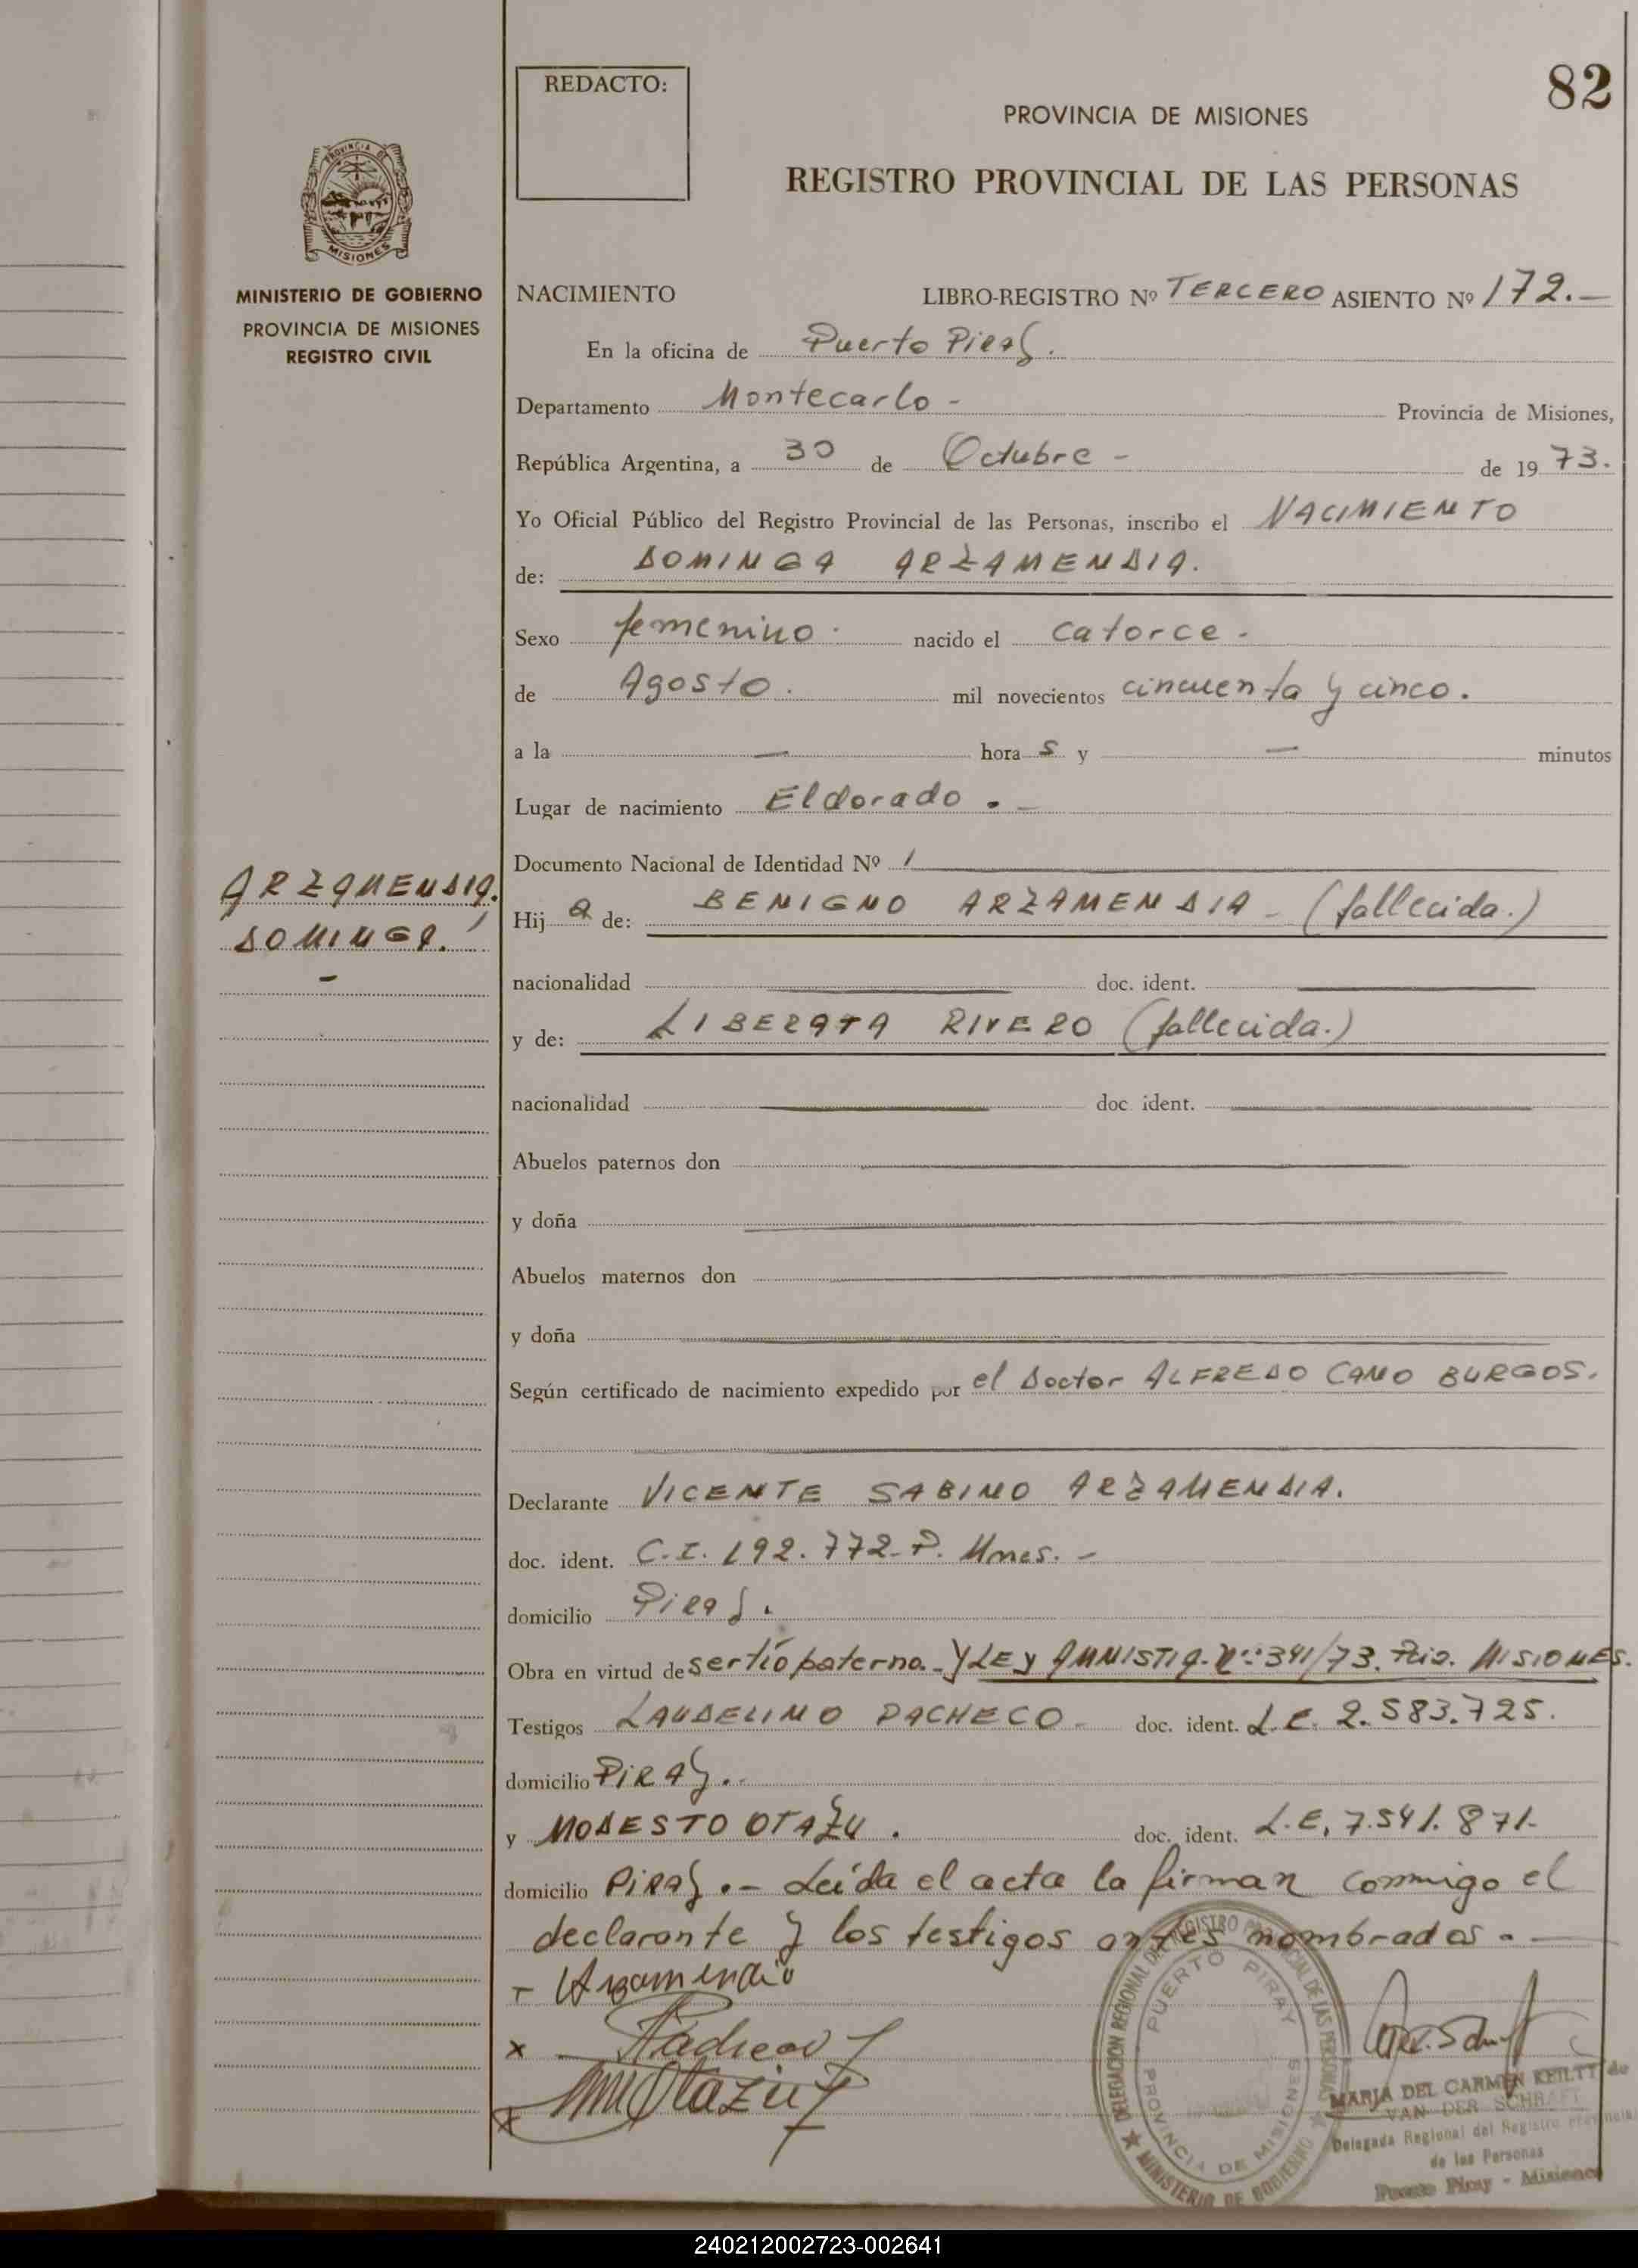 82
REDACTO:
PROVINCIA DE MISIONES
REGISTRO PROVINCIAL DE LAS PERSONAS
PROVINCIA DE
MISIONES
MINISTERIO DE GOBIERNO
PROVINCIA DE MISIONES
REGISTRO CIVIL
NACIMIENTO LIBRO-REGISTRO Nº TERCERO ASIENTO Nº 172.—
En la oficina de Puerto Piray.
Departamento Montecarlo - Provincia de Misiones,
República Argentina, a 30 de Octubre - de 19 73.
Yo Oficial Público del Registro Provincial de las Personas, inscribo el NACIMIENTO
de: DOMINGA ARZAMENDIA.
Sexo femenino. nacido el catorce.
de Agosto. mil novecientos cincuenta y cinco.
a la — hora s y — minutos
Lugar de nacimiento Eldorado .-
Documento Nacional de Identidad Nº /
ARZAMENDIA.
DOMINGA.
-
Hij a de: BENIGNO ARZAMENDIA - (fallecida.)
nacionalidad doc. ident.
y de: LIBERATA RIVERO (fallecida.)
nacionalidad doc. ident.
Abuelos paternos don
y doña
Abuelos maternos don
y doña
Según certificado de nacimiento expedido por el Doctor ALFREDO CANO BURGOS.
Declarante VICENTE SABINO ARZAMENDIA.
doc. ident. C.I. 192.772-P. Mnes. -
domicilio Piray.
Obra en virtud de ser tío paterno.- Y LEY AMNISTIA. Nº 341/73. Pcia. MISIONES.
Testigos LAUDELINO PACHECO - doc. ident. L.E. 2.583.725.
domicilio PIRAY.-
y MODESTO OTAZU. doc. ident. L.E. 7.541.871-
domicilio PIRAY.- Leída el acta la firman conmigo el
declarante y los testigos antes nombrados.-
- Arzamendia
x Pacheco
x Otazu
DELEGACION REGIONAL DEL REGISTRO PROVINCIAL DE LAS PERSONAS
PUERTO PIRAY
PROVINCIA DE MISIONES
★ MINISTERIO DE GOBIERNO ★
MARIA DEL CARMEN KEILTY de
VAN DER SCHRAFT
Delegada Regional del Registro Provincial
de las Personas
Puerto Piray - Misiones
240212002723-002641